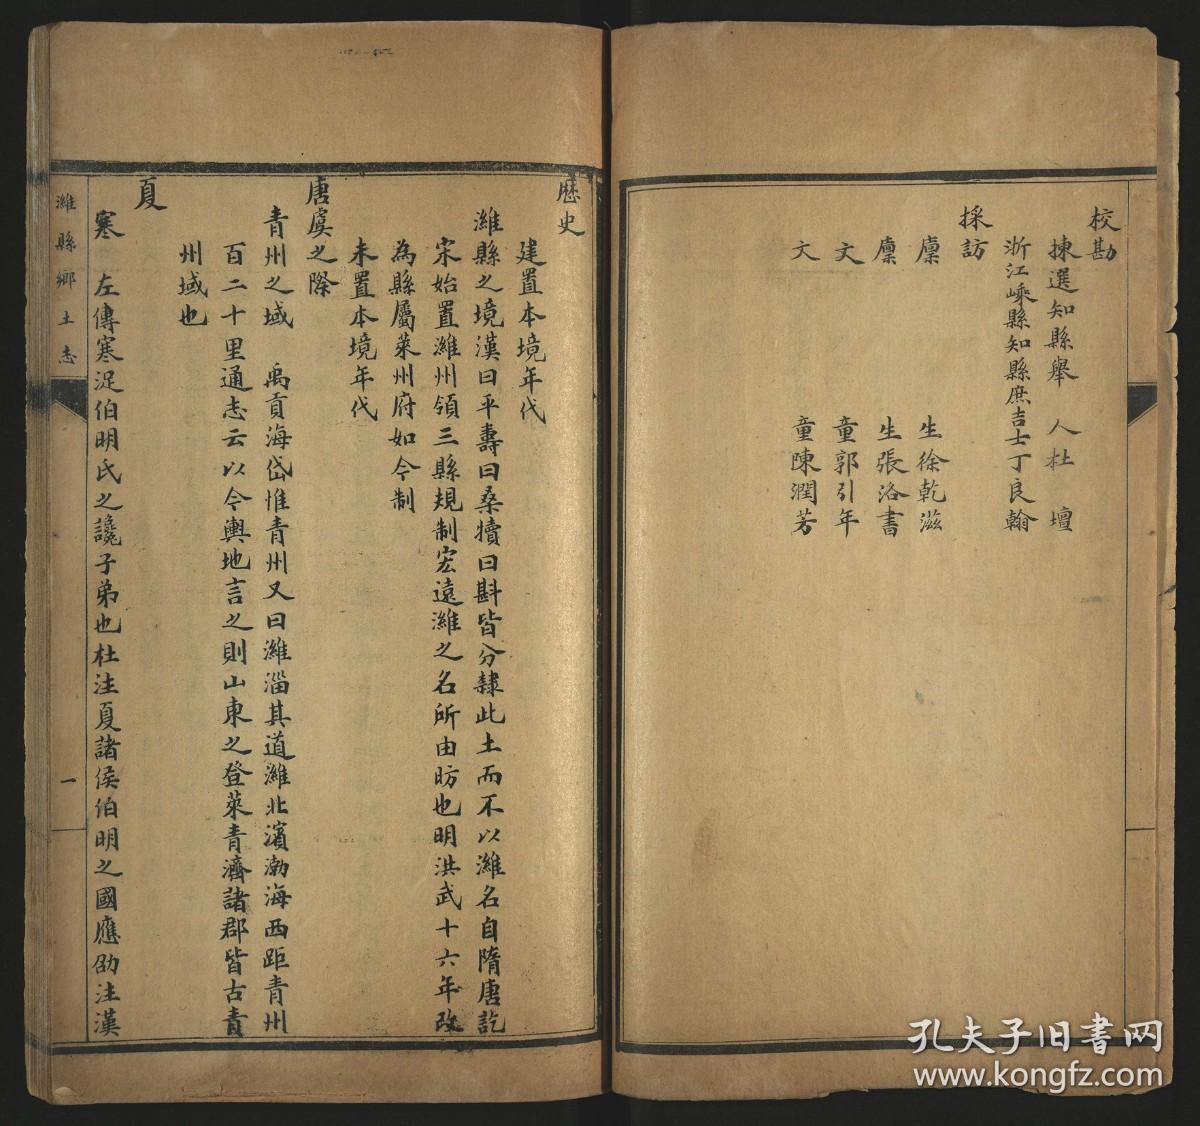 校勘
揀選知縣舉人杜壇
浙江嵊縣知縣庶吉士丁良翰
採訪
廩生徐乾滋
廩生張洛書
文童郭引年
文童陳潤芳
歷史
建置本境年代
濰縣之境漢曰平壽曰桑犢曰斟皆分隸此土而不以濰名自隋唐訖
宋始置濰州領三縣規制宏遠濰之名所由昉也明洪武十六年改
為縣屬萊州府如今制
未置本境年代
唐虞之際
青州之域 禹貢海岱惟青州又曰濰淄其道濰北濱渤海西距青州
百二十里通志云以今輿地言之則山東之登萊青濟諸郡皆古青
州域也
夏
寒 左傳寒浞伯明氏之讒子弟也杜注夏諸侯伯明之國應劭注漢
濰縣鄉土志
一
孔夫子旧书网
www.kongfz.com